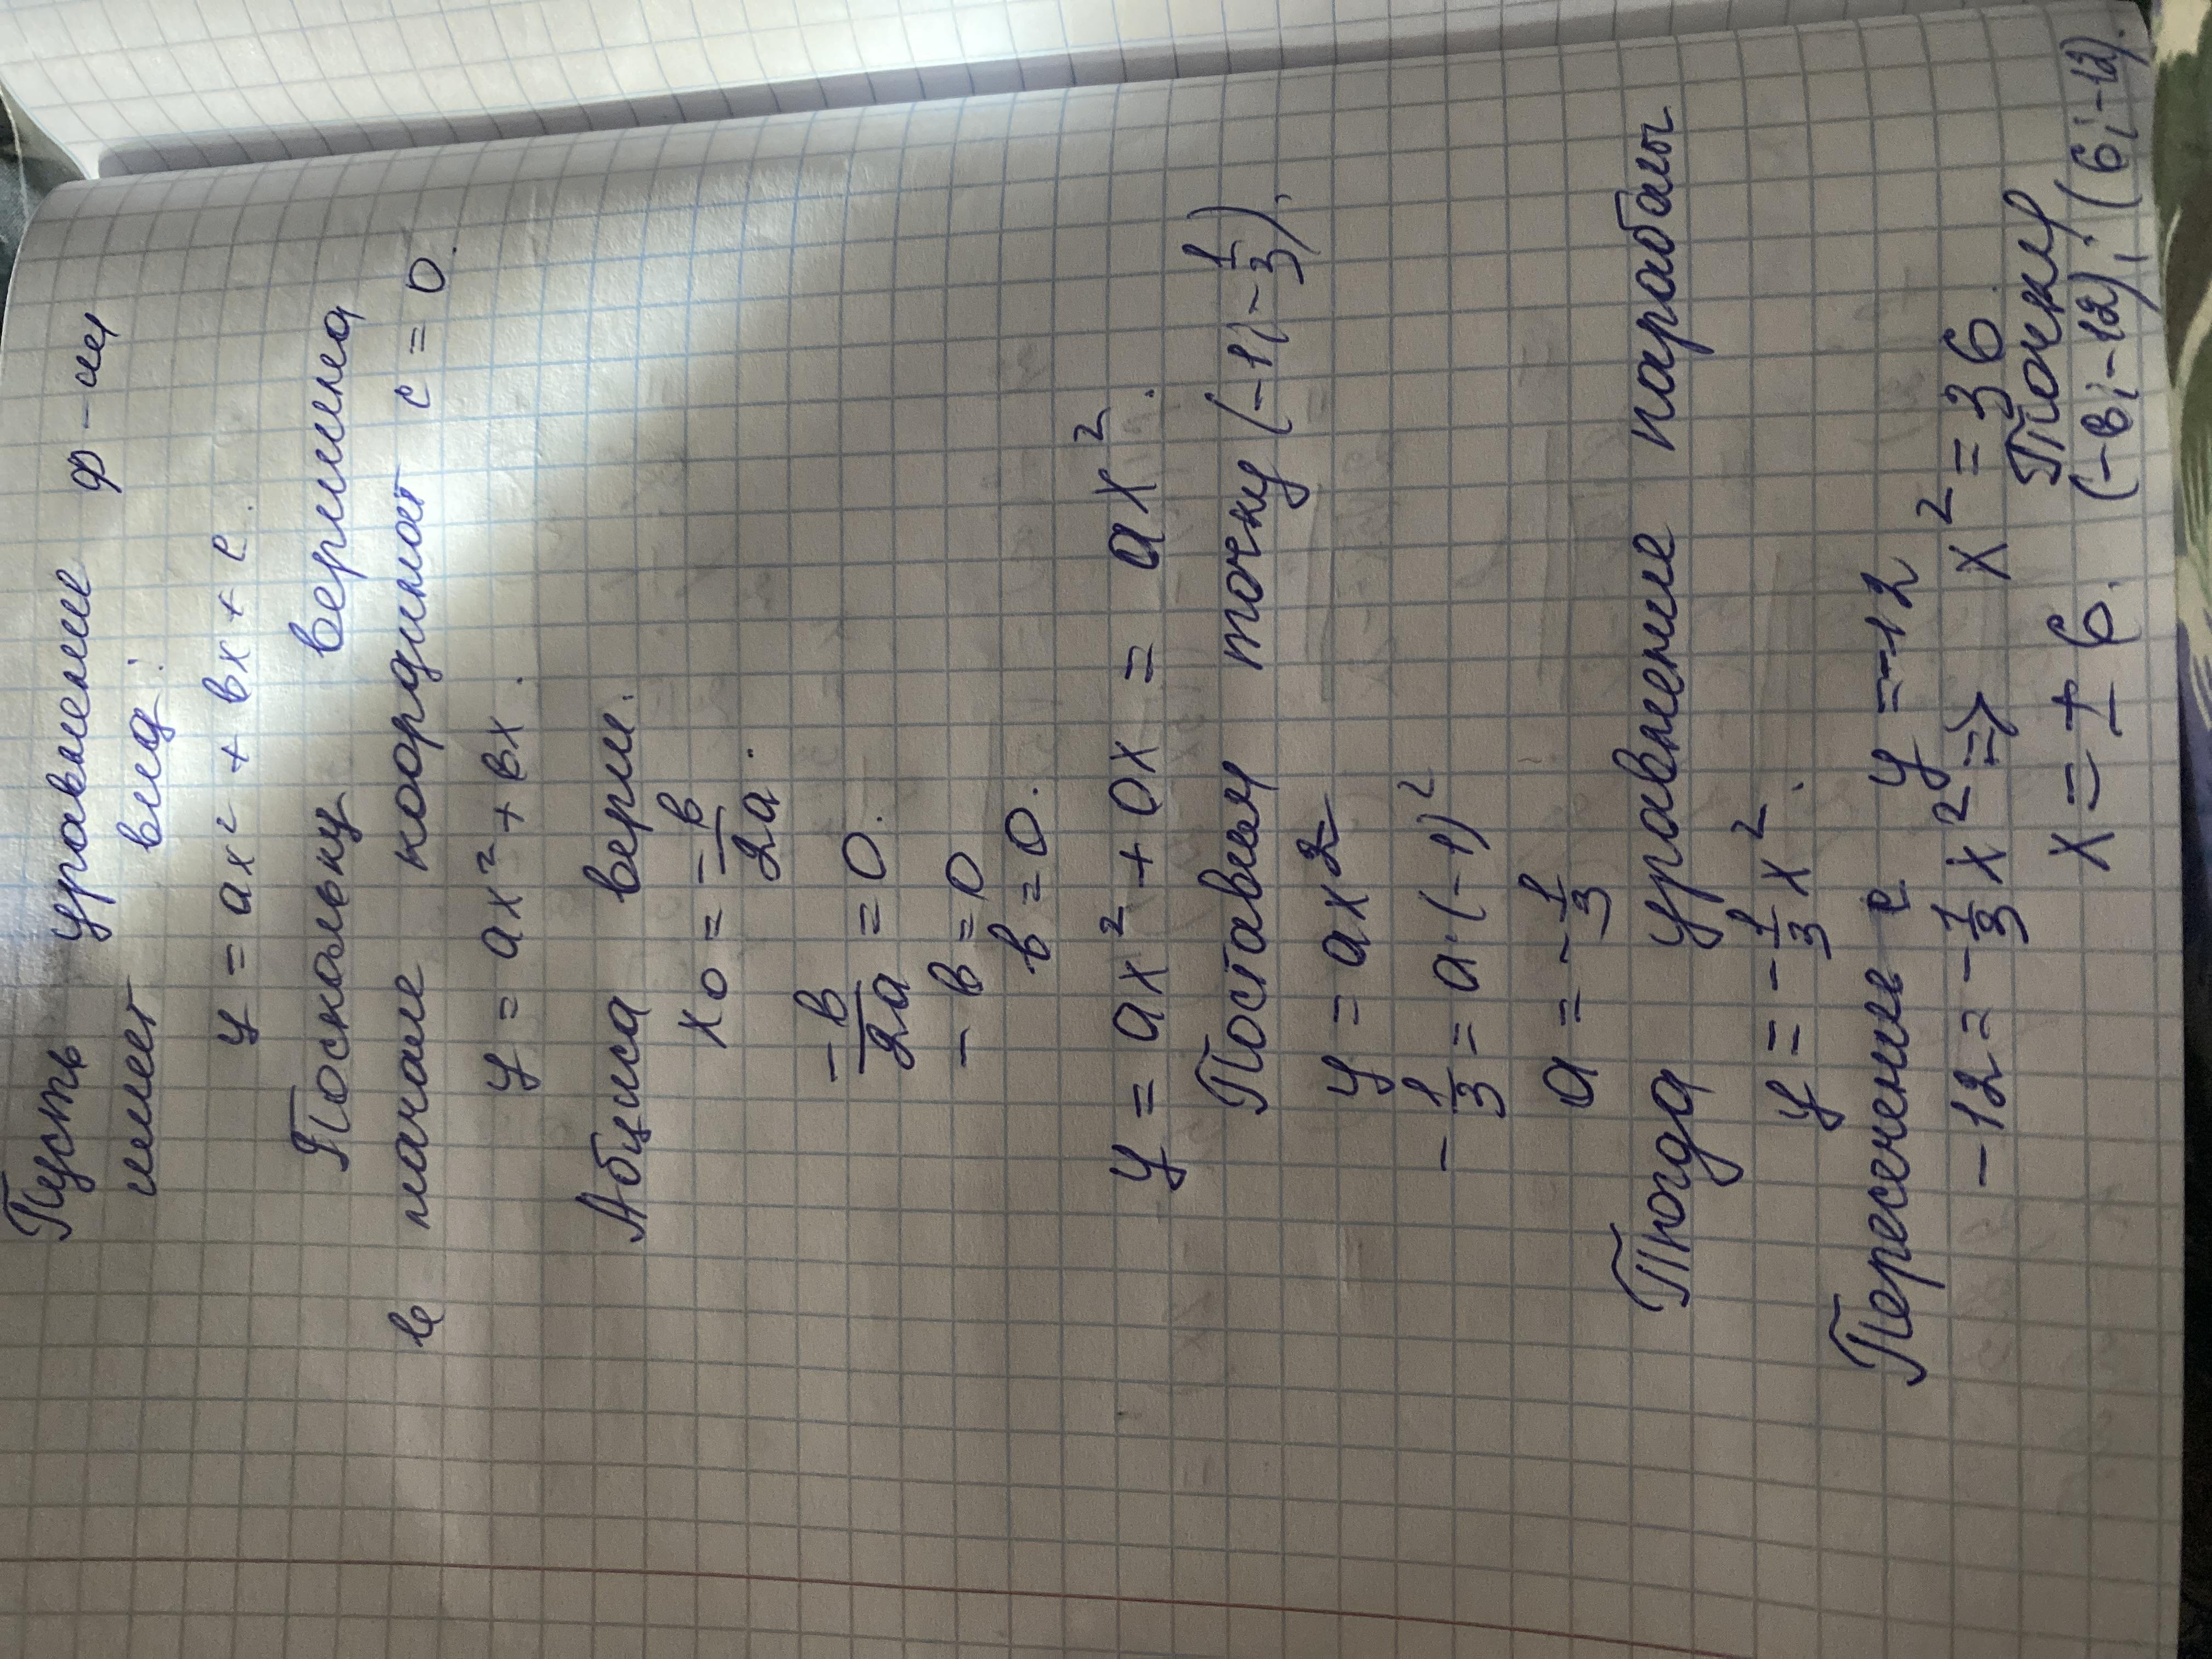 Пусть уравнение ф-ии
имеет вид:
y = ax² + bx + c.
Поскольку вершина
в начале координат c = 0.
y = ax² + bx.
Абциса верш.
x0 = -b/2a.
-b/2a = 0.
-b = 0
b = 0.
y = ax² + 0x = ax².
Поставим точку (-1; -1/3).
y = ax²
-1/3 = a·(-1)²
a = -1/3
Тогда уравнение параболы
y = -1/3 x².
Пересечение с y = -12
-12 = -1/3 x² => x² = 36.
x = ± 6. Точки
(-6; -12); (6; -12).